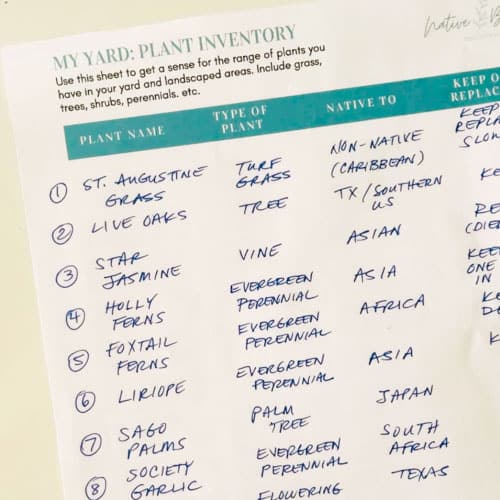 Native B
MY YARD: PLANT INVENTORY
Use this sheet to get a sense for the range of plants you
have in your yard and landscaped areas. Include grass,
trees, shrubs, perennials. etc.
PLANT NAME TYPE OF PLANT NATIVE TO KEEP O REPLAC
1 ST. AUGUSTINE GRASS TURF GRASS NON-NATIVE (CARIBBEAN) KEEP REPLA SLOW
2 LIVE OAKS TREE TX / SOUTHERN US KE
3 STAR JASMINE VINE ASIAN RE (DIED
4 HOLLY FERNS EVERGREEN PERENNIAL ASIA KEEP ONE IN
5 FOXTAIL FERNS EVERGREEN PERENNIAL AFRICA KE DE
6 LIRIOPE EVERGREEN PERENNIAL ASIA K
7 SAGO PALMS PALM TREE JAPAN
8 SOCIETY GARLIC EVERGREEN PERENNIAL SOUTH AFRICA
FLOWERING TEXAS